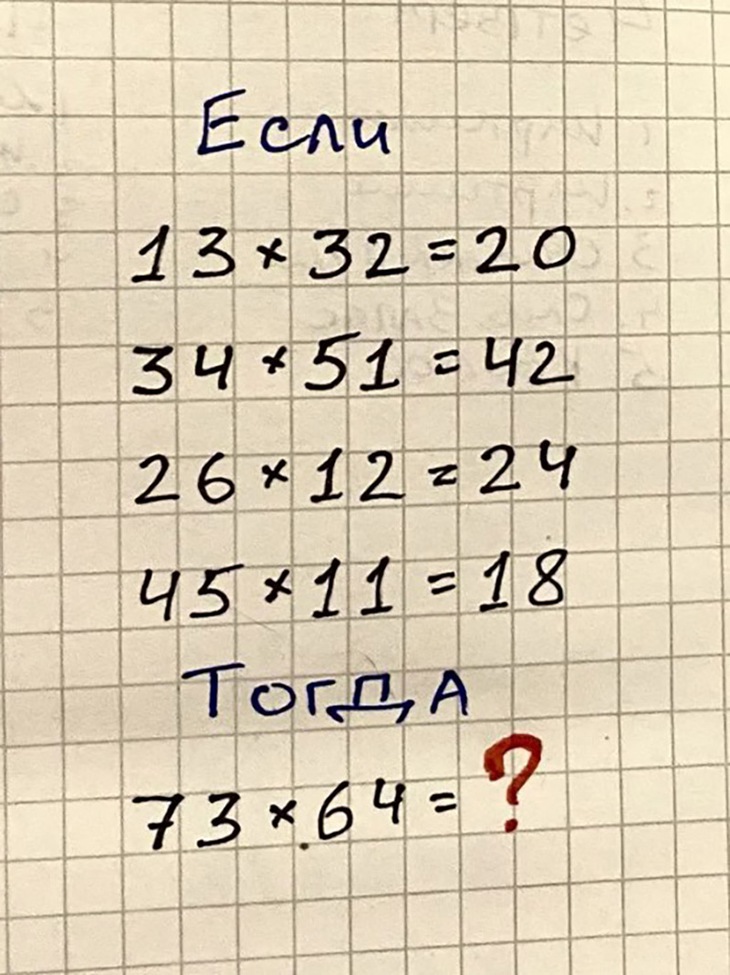 Если
13×32=20
34×51=42
26×12=24
45×11=18
Тогда
73×64=?